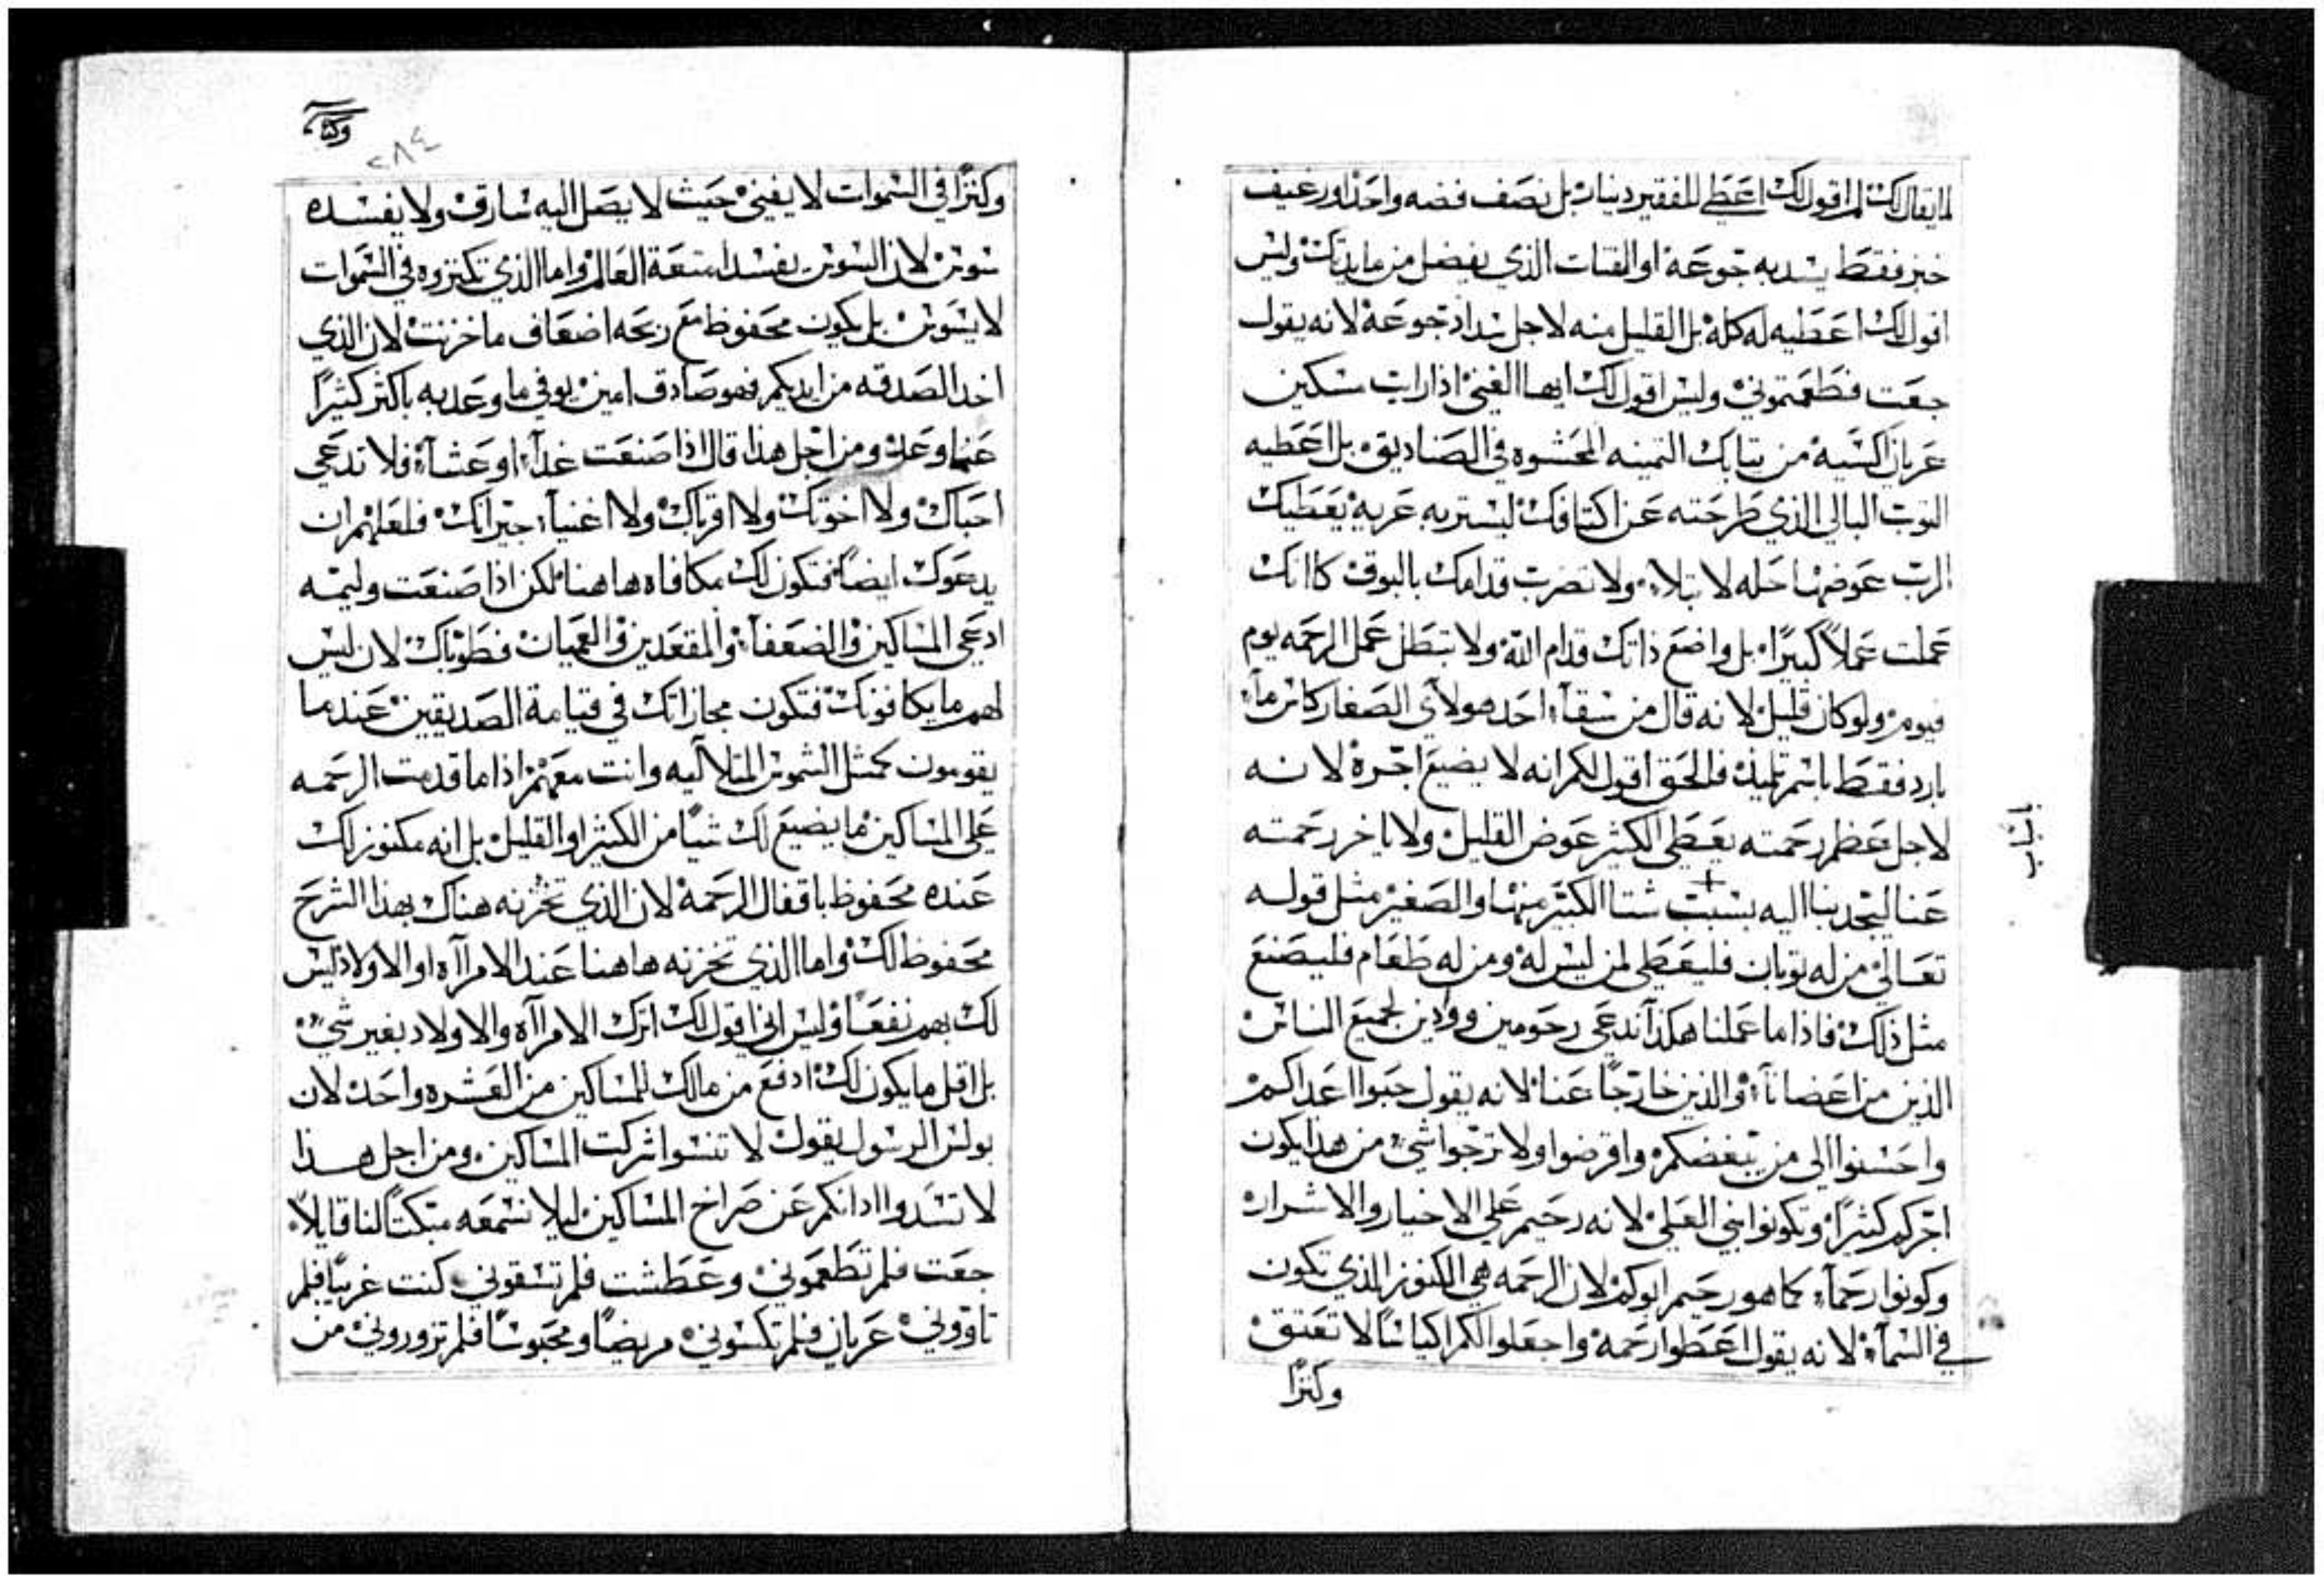 لما يقال لك لم اقول لك اعطي للفقير دينار بل نصف فضه واحد او رغيف
خبز فقط يسد به جوعه او الفتات الذي يفضل من مايدتك وليس
اقول لك اعطيه له كله بل القليل منه لاجل سداد جوعه لانه يقول
جعت فطعمتموني وليس اقول لك ايها الغني اذا رايت مسكين
عريان اكسيه من تيابك التمينه المحشوه في الصناديق بل اعطيه
التوب البالي الذي طرحته عن اكتافك ليستر به عريه يعطيك
الرب عوضها حله لا تبلاء ولا تضرب قدامك بالبوق كاانك
عملت عملاً كبيرًا بل واضع ذاتك قدام الله ولا تبطل عمل الرحمه يوم
فيوم ولو كان قليل لانه قال من سقآء احد هولآي الصغار كاس مآء
بارد فقط باسم تلميذ فالحق اقول لكم انه لا يضيع اجره لانه
لاجل عظم رحمته يعطي الكثير عوض القليل ولا ياخر رحمته
عنا ليجدبنا اليه بسبب شتا الكبير منها والصغير مثل قوله
تعالي من له توبان فليعطي لمن ليس له ومن له طعام فليصنع
مثل ذلك فاذا ما عملنا هكذآ ندعي رحومين ووادين لجميع الناس
الذين من اعضانآء والذين خارجًا عنا لانه يقول حبوا اعداكم
واحسنوا الي من يبغضكم واقرضوا ولا ترجوا شي من هذا يكون
اجركم كثيرًا وتكونوا بني العلي لانه رحيم علي الاخيار والاشرار
وكونوا رحمآء كما هو رحيم ابوكم لان الرحمه هي الكنوز الذي تكون
في السمآء لانه يقول اعطوا رحمه واجعلوا لكم اكياسًا لا تعتق
وكنزًا
باسباب
٢٨٤
وكنزًا في السموات لا يفني حيث لا يصل اليه سارق ولا يفسده
سوس لان السوس يفسد امتعة العالم واما الذي تكنزوه في السموات
لا يسوس بل يكون محفوظ مع ربحه اضعاف ما خزنت لان الذي
اخد الصدقه من ايديكم فهو صادق امين يوفي ما وعد به باكثر كثيرًا
عما وعد ومن اجل هذا قال اذا صنعت غدآء او عشآء فلا تدعي
احباك ولا اخوتك ولا اقرباك ولا اغنيآء جيرانك فلعلهم ان
يدعوك ايضًا فتكون لك مكافاه هاهنا لكن اذا صنعت وليمه
ادعي المساكين والضعفآء والمقعدين والعميان فطوباك لان ليس
لهم ما يكافونك فتكون مجازاتك في قيامة الصديقين عندما
يقومون كمثل الشموس المتلاآليه وانت معهم اذا ما قدمت الرحمه
علي المساكين ما يضيع لك شيًا من الكثير او القليل بل انه مكنوز لك
عنده محفوظ باقفال الرحمه لان الذي تخزنه هناك بهذا الشرح
محفوظ لك واما الذي تخزنه هاهنا عند الامرآاه او الاولاد ليس
لك بهم نفعًا وليس اني اقول لك اترك الامرآاه والاولاد بغير شي
بل اقل ما يكون لك ادفع من مالك للمساكين من العشره واحد لان
بولس الرسول يقول لا تنسوا شركت المساكين ومن اجل هذا
لا تسدوا ادانكم عن صراخ المساكين ليلا نسمعه مبكتًا لنا قايلاً
جعت فلم تطعموني وعطشت فلم تسقوني كنت غريبًا فلم
تاووني عريان فلم تكسوني مريضًا ومحبوسًا فلم تزوروني من